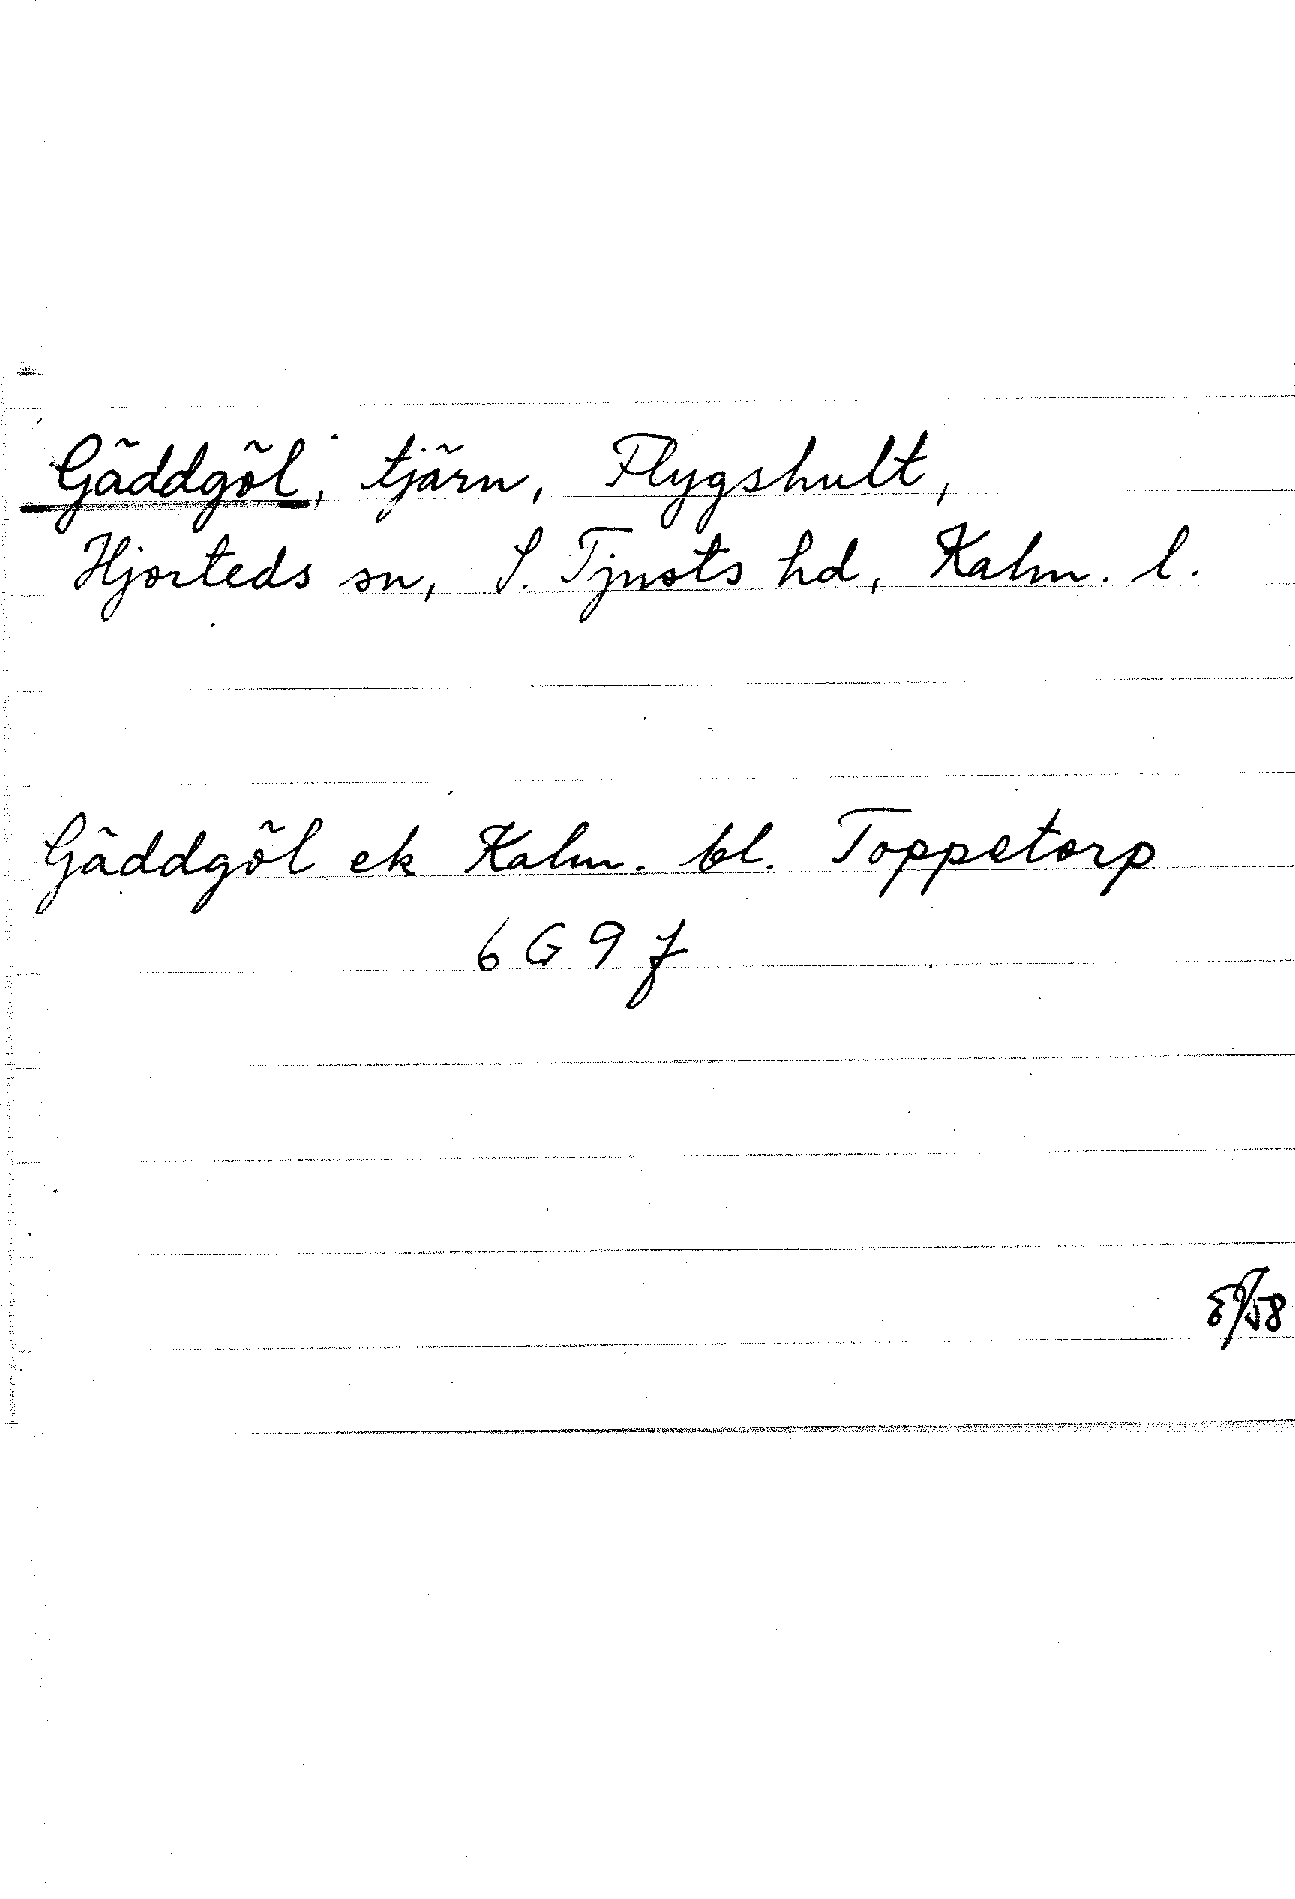 Gäddgöl, tjärn, Flygshult,
Hjorteds sn, S. Tjusts hd, Kalm. l.
Gäddgöl ek Kalm. bl. Toppetorp
6 G 9 f